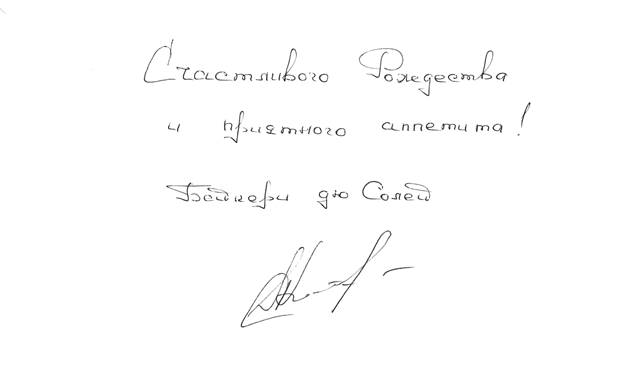 Счастливого Рождества
и приятного аппетита!
Бейкери дю Солей